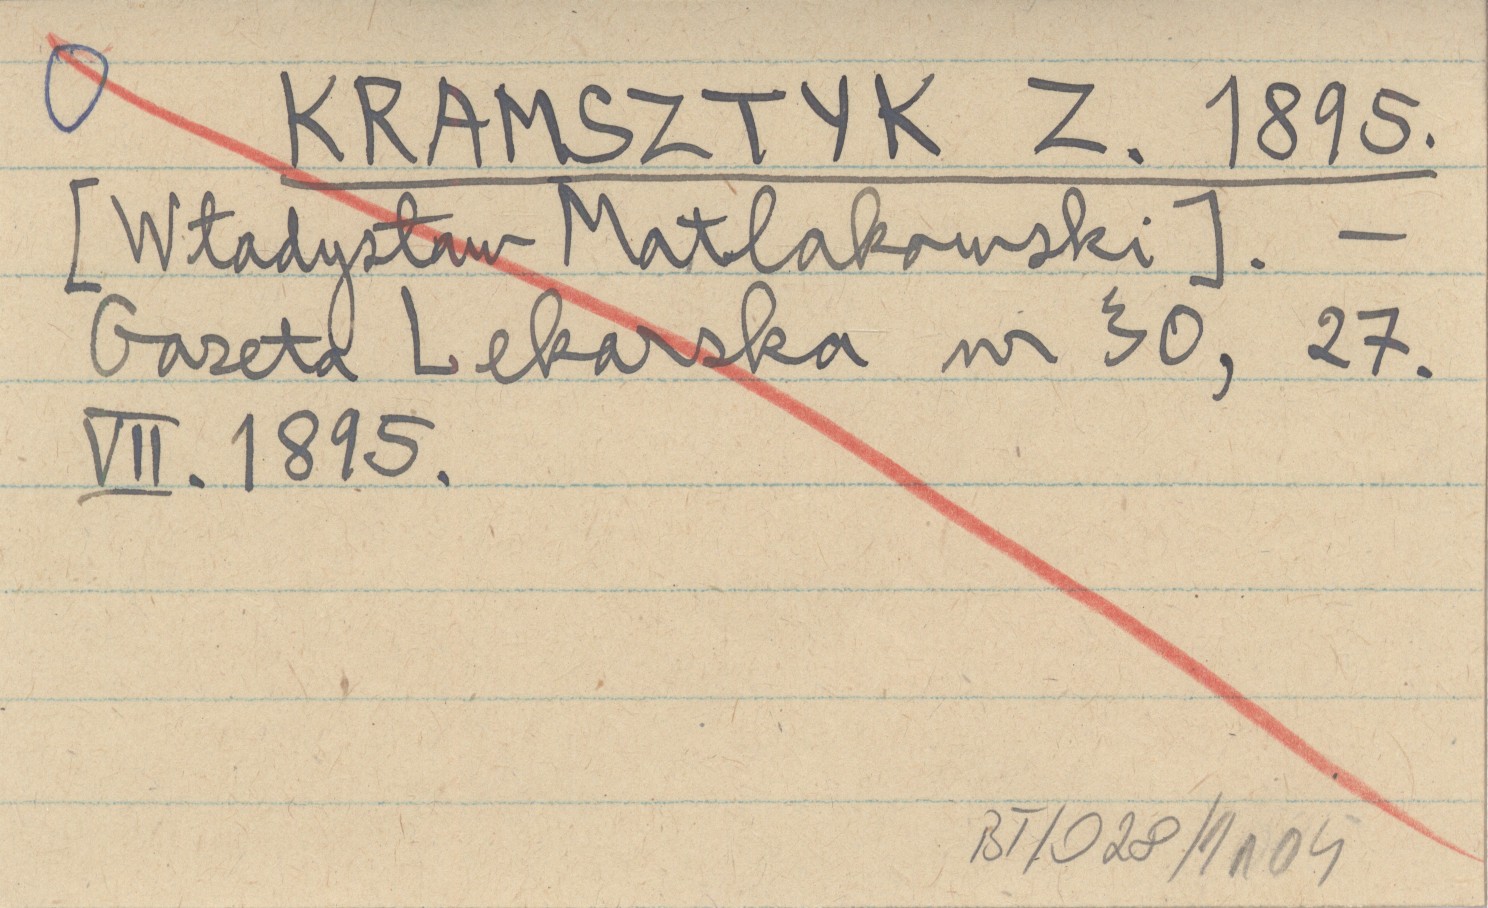 KRAMSZTYK Z. 1895.
[Władysław Matlakowski]. —
Gazeta Lekarska nr 30, 27.
VII. 1895.
BT/028/1104